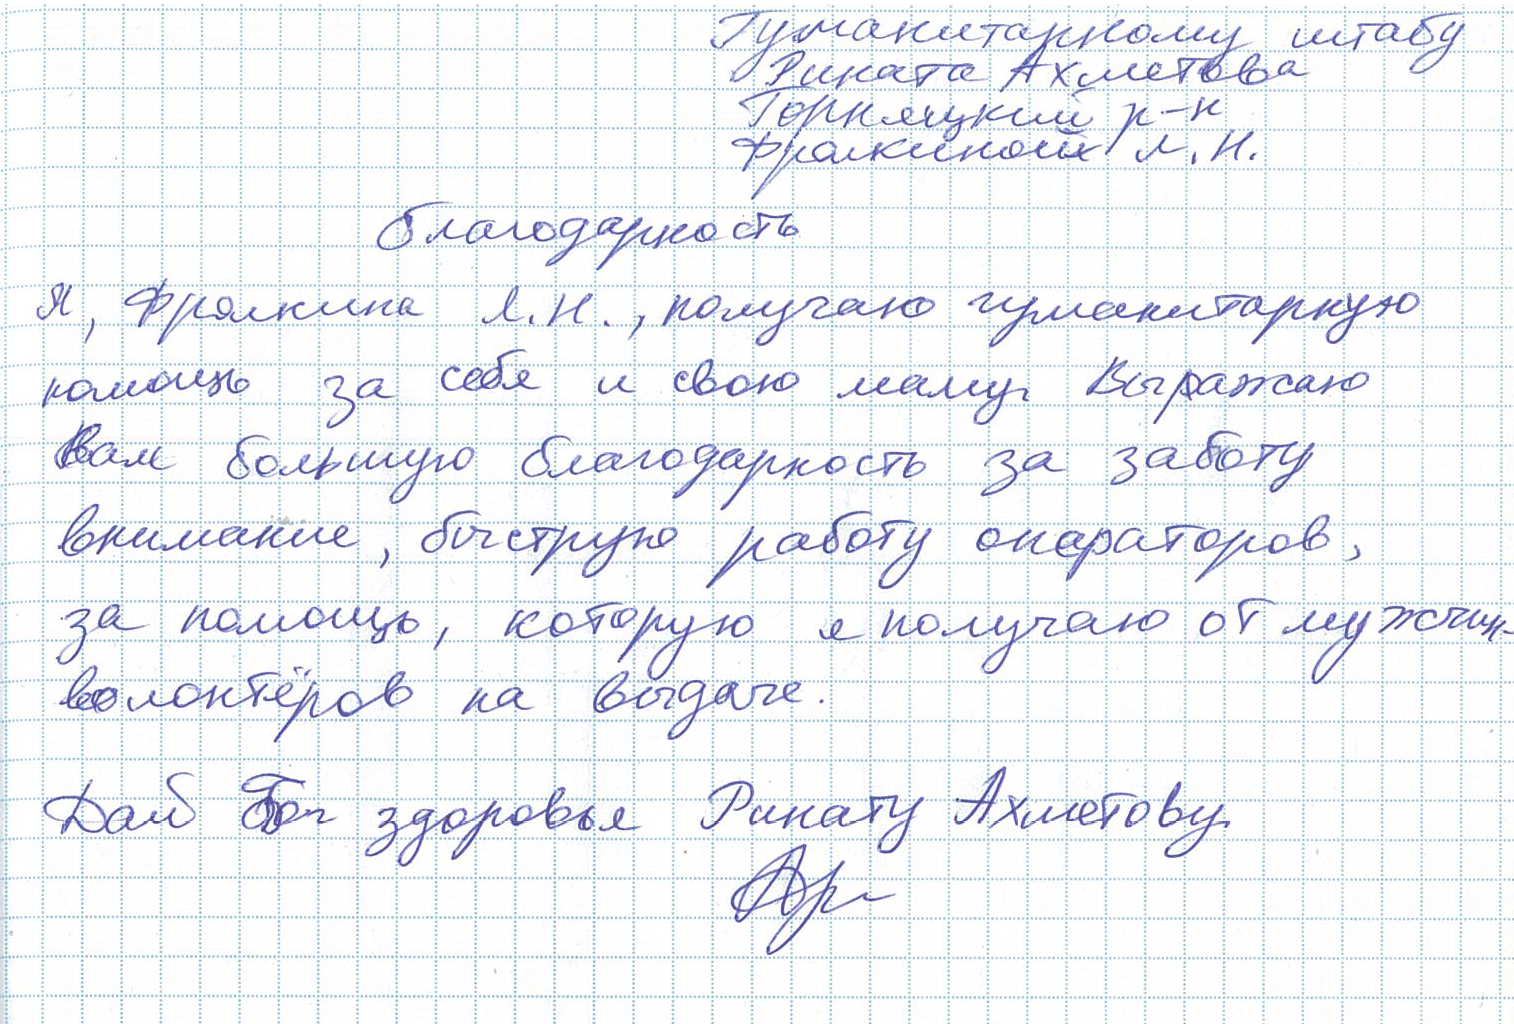 Гуманитарному штабу
Рината Ахметова
Горняцкий р-н
Фролкиной Л.Н.
благодарность
Я, Фролкина Л.Н., получаю гуманитарную
помощь за себя и свою маму. Выражаю
Вам большую благодарность за заботу
внимание, быструю работу операторов,
за помощь, которую я получаю от мужчин-
волонтёров на выдаче.
Дай Бог здоровья Ринату Ахметову.